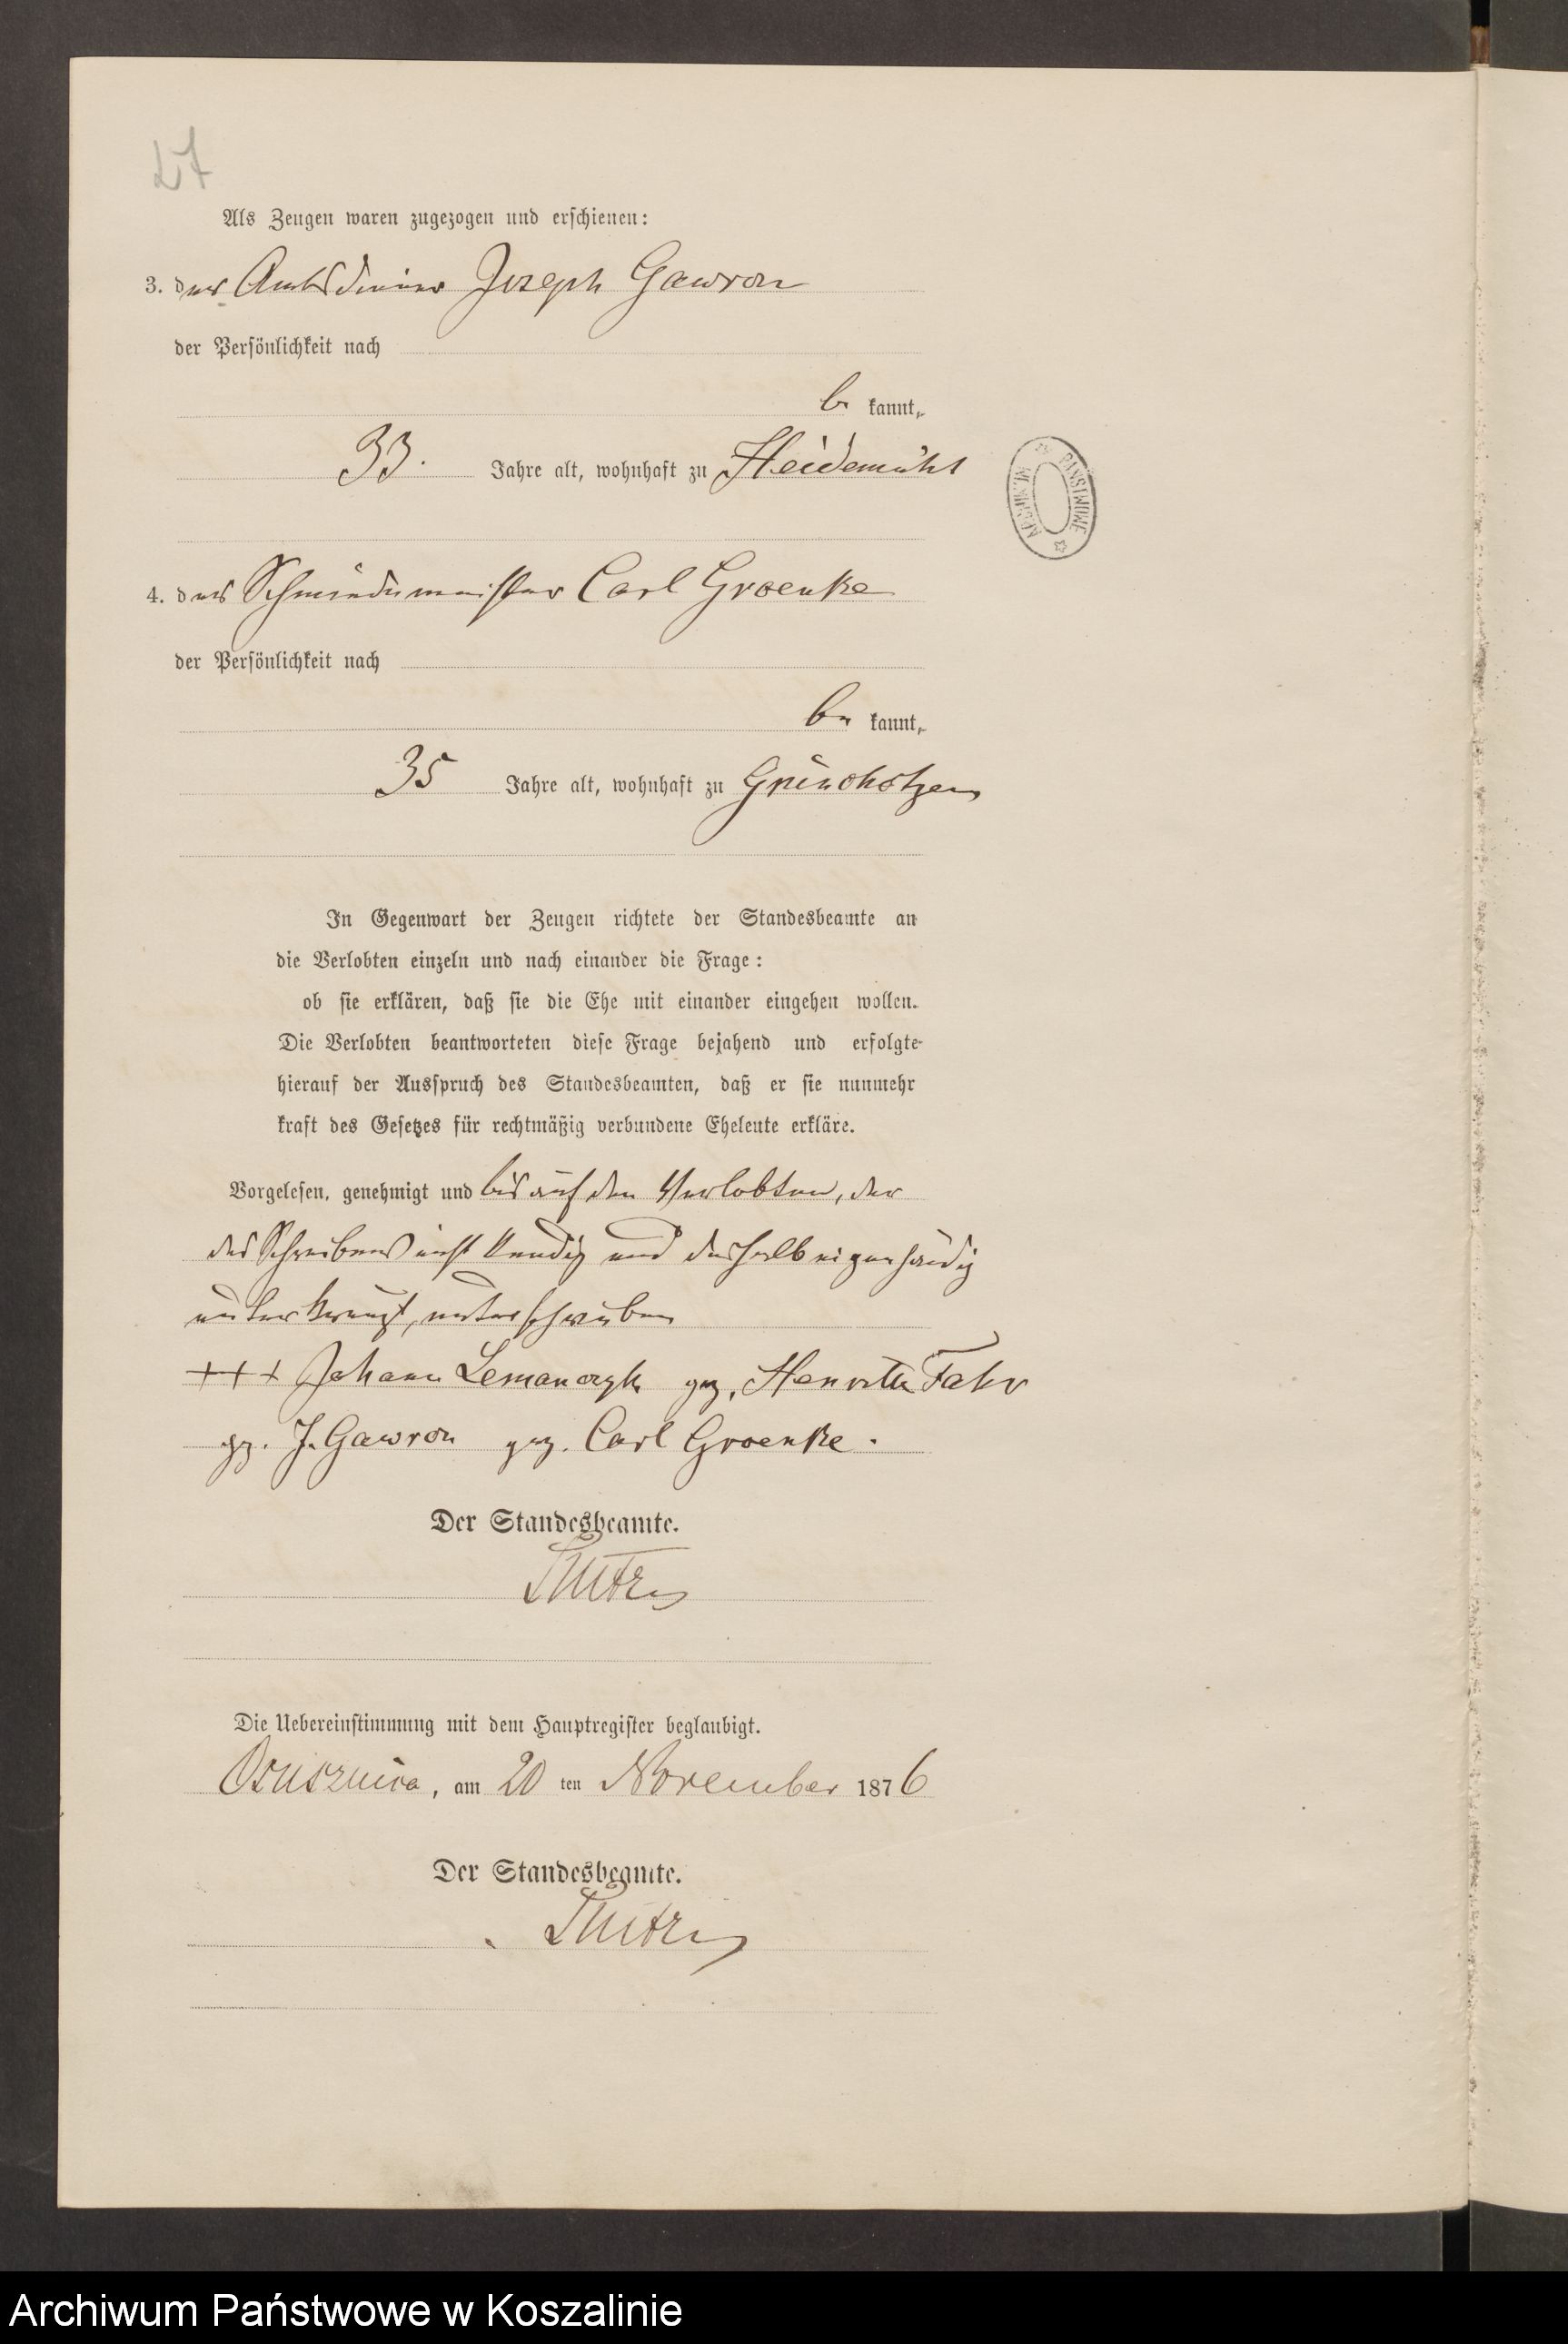 27
Als Zeugen waren zugezogen und erschienen:
3. der Amtsdiener Joseph Gawron
der Persönlichkeit nach
be kannt,
33. Jahre alt, wohnhaft zu Heidemühl
4. der Schmiedemeister Carl Groenke
der Persönlichkeit nach
be kannt,
35 Jahre alt, wohnhaft zu Grünchotzen
In Gegenwart der Zeugen richtete der Standesbeamte an
die Verlobten einzeln und nach einander die Frage:
ob sie erklären, daß sie die Ehe mit einander eingehen wollen.
Die Verlobten beantworteten diese Frage bejahend und erfolgte
hierauf der Ausspruch des Standesbeamten, daß er sie nunmehr
kraft des Gesetzes für rechtmäßig verbundene Eheleute erkläre.
Vorgelesen, genehmigt und bis auf den Verlobten, der
des Schreibens nicht kundig und deshalb eigenhändig
unterkreuzt, unterschrieben
+++ Johann Lemanczyk gez. Henriette Fahr
gez. J. Gawron gez. Carl Groenke.
Der Standesbeamte.
Die Uebereinstimmung mit dem Hauptregister beglaubigt.
Osusznica, am 20 ten November 1876
Der Standesbeamte.
Archiwum Państwowe w Koszalinie